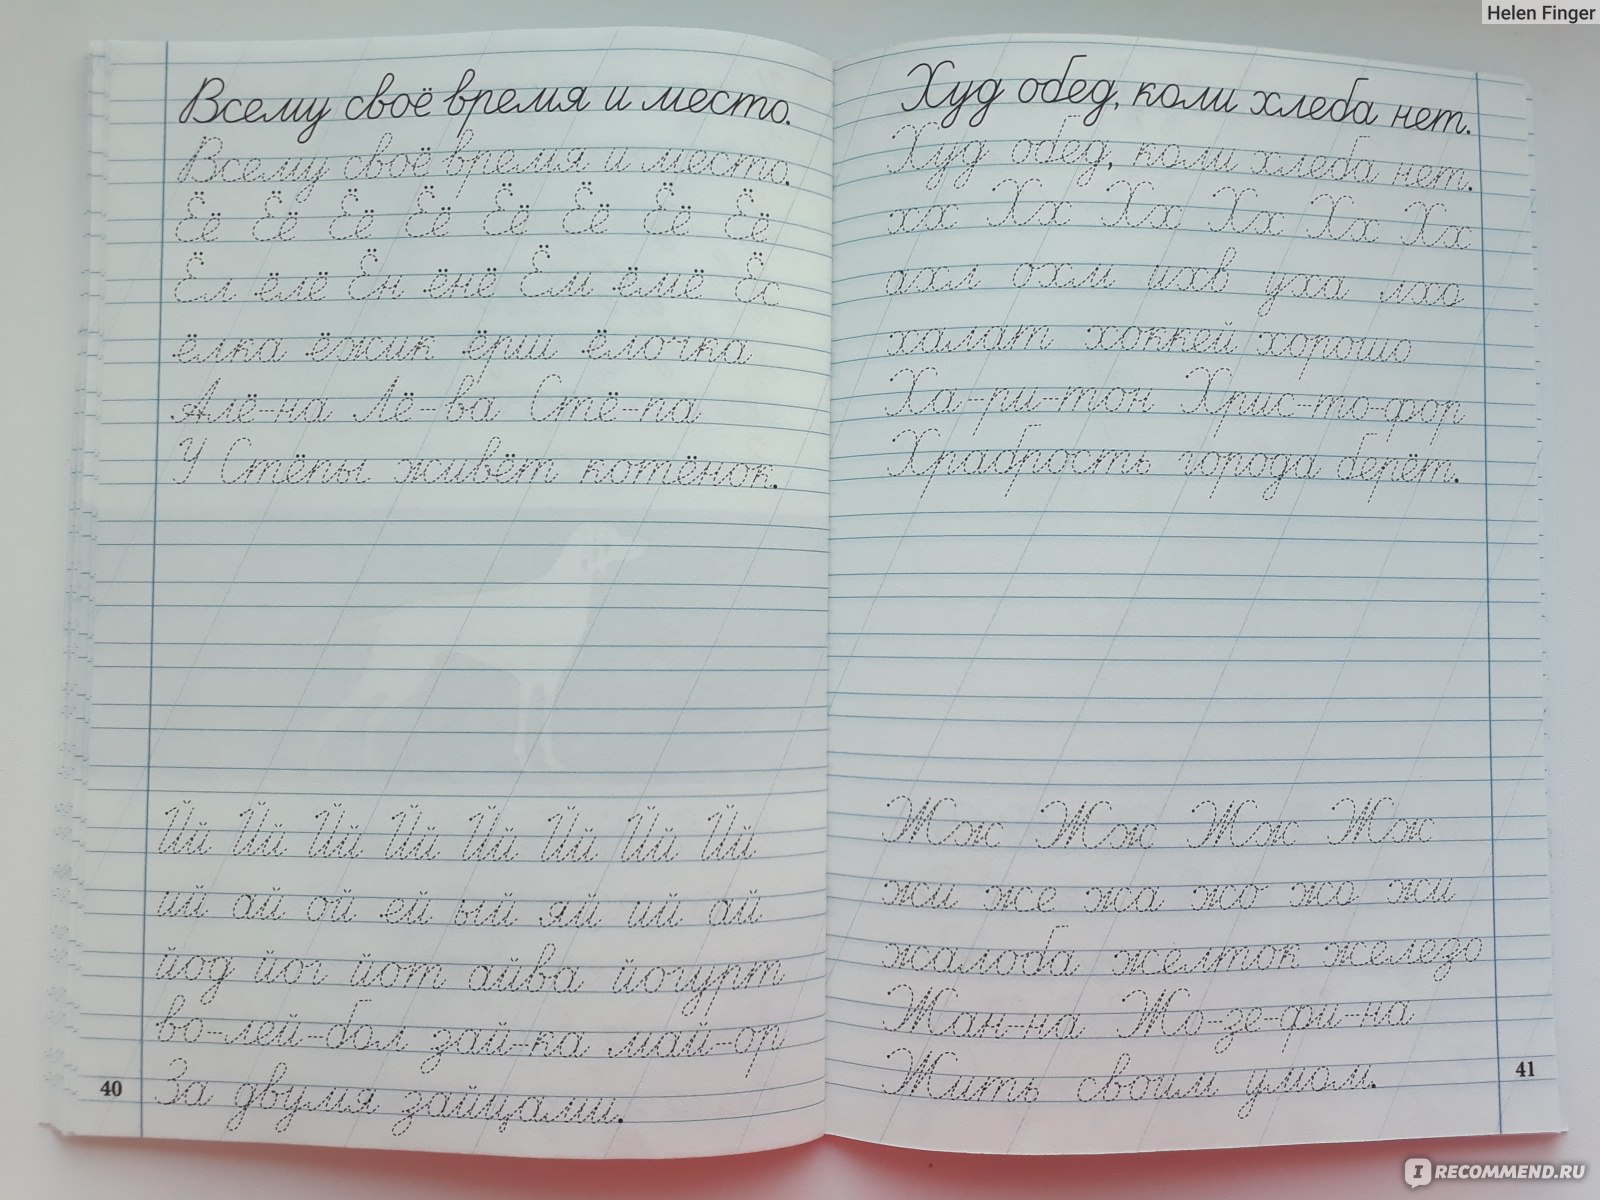 Helen Finger
Всему своё время и место.
Всему своё время и место.
Ёё Ёё Ёё Ёё Ёё Ёё Ёё Ёё
Ёл ёлё Ён ёнё Ём ёмё Ёс
ёлка ёжик ёрш ёлочка
Алё-на Лё-ва Стё-па
У Стёпы живёт котёнок.
Йй Йй Йй Йй Йй Йй Йй Йй
ий ай ой ей ый яй ий ай
йод йог йот айва йогурт
во-лей-бол зай-ка май-ор
За двумя зайцами.
40
Худ обед, коли хлеба нет.
Худ обед, коли хлеба нет.
хх Хх Хх Хх Хх Хх
ахл охм ихв уха лхо
халат хоккей хорошо
Ха-ри-тон Хрис-то-фор
Храбрость города берёт.
Жж Жж Жж Жж
жи же жа жо жо жи
жалоба желток железо
Жан-на Жо-зе-фи-на
Жить своим умом.
41
IRECOMMEND.RU